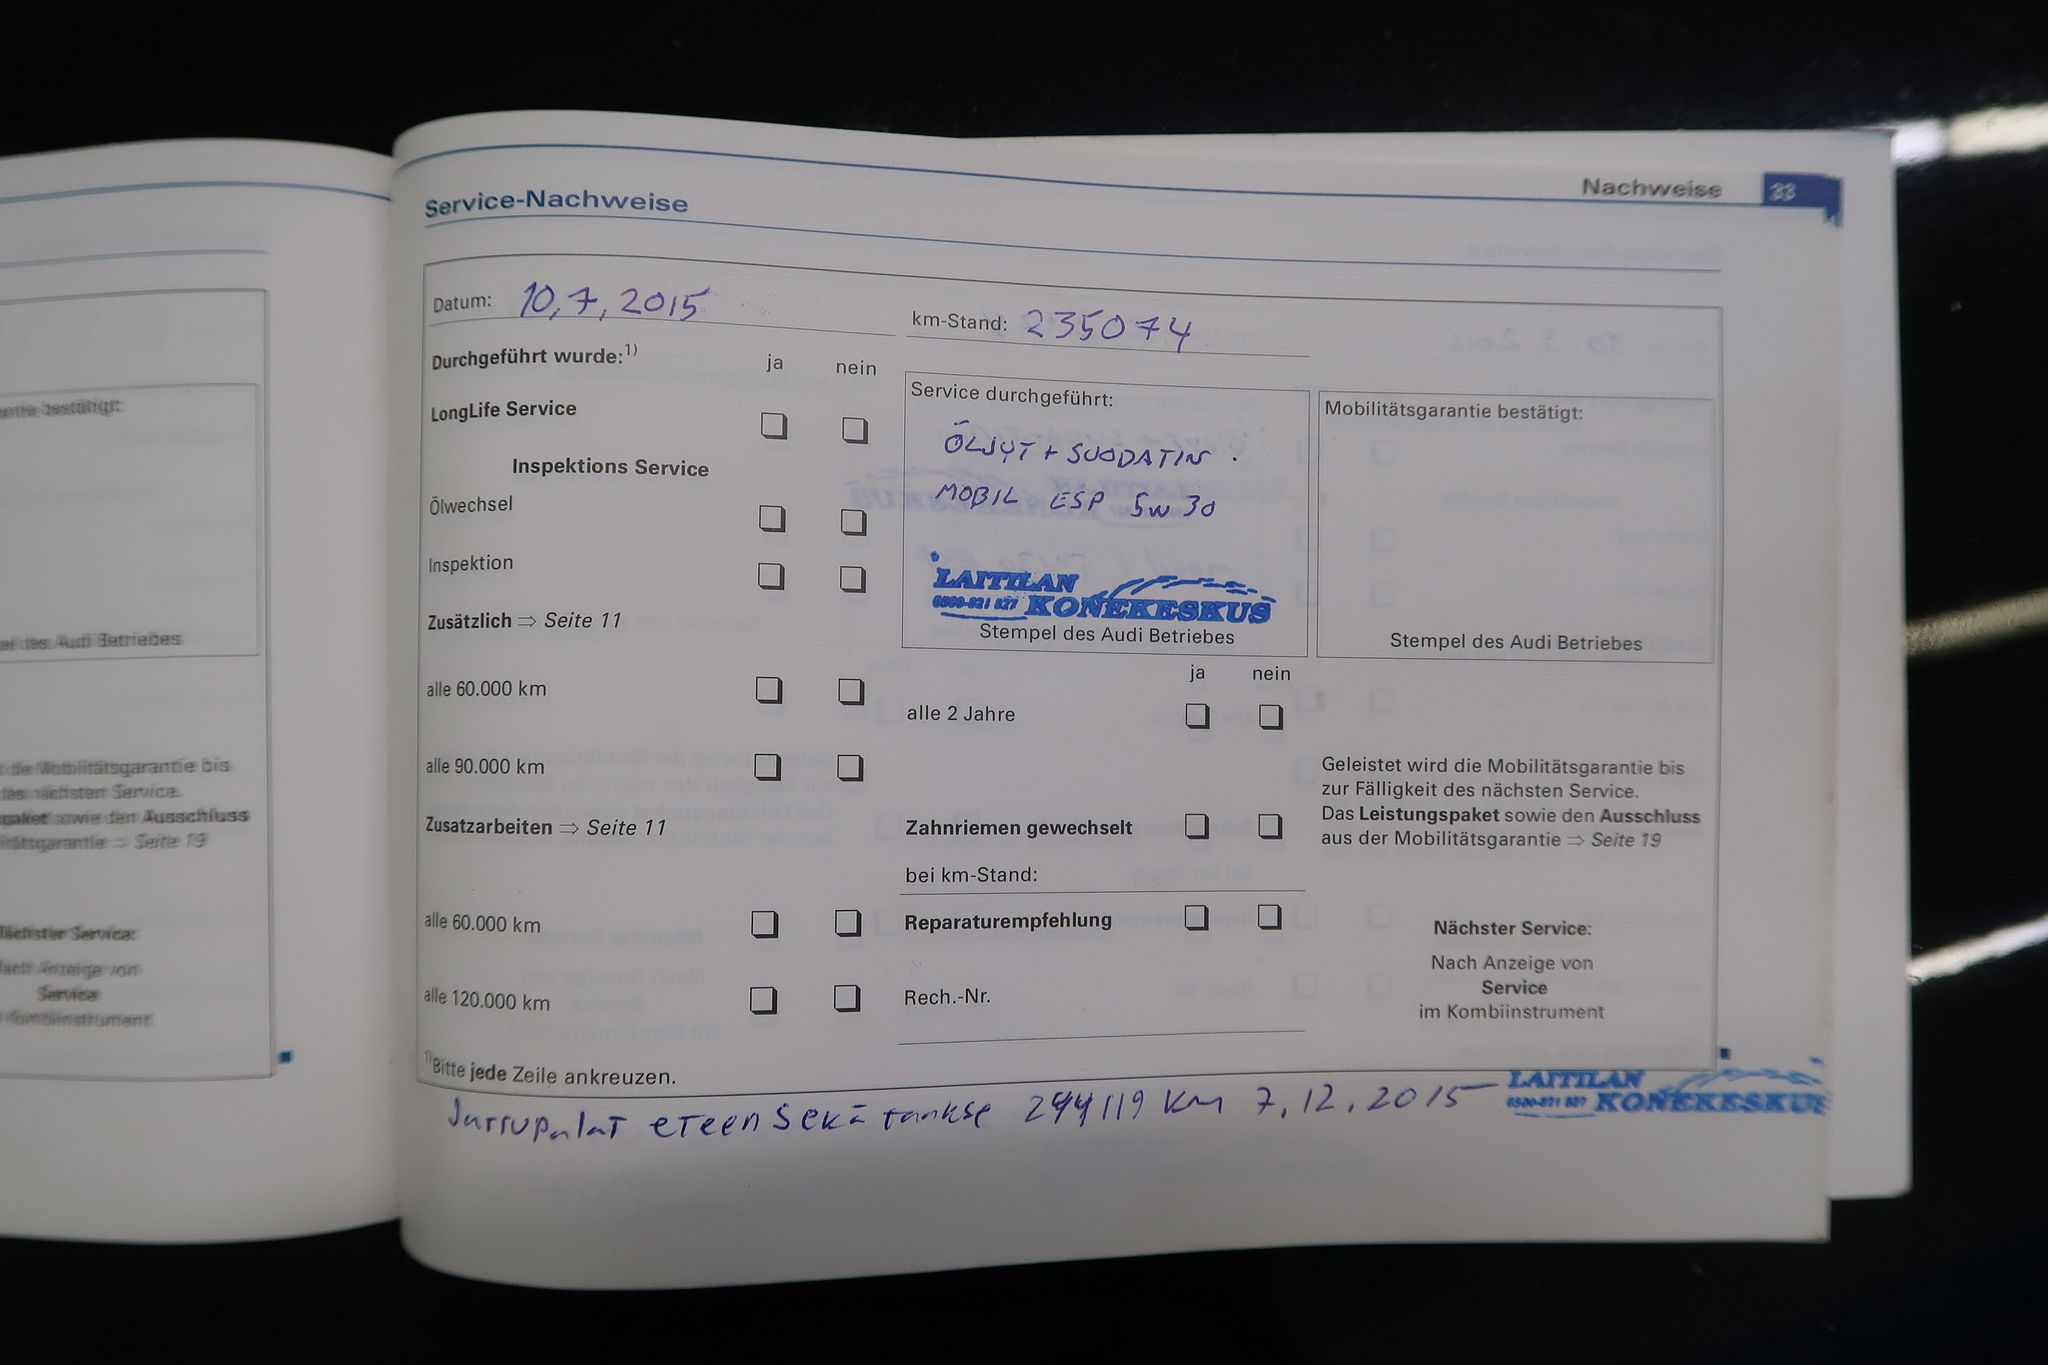 Nachweise 33
Service-Nachweise
Datum: 10,7,2015
km-Stand: 235074
Durchgeführt wurde:1)
ja nein
LongLife Service
Inspektions Service
Ölwechsel
Inspektion
Zusätzlich ⇒ Seite 11
alle 60.000 km
alle 90.000 km
Zusatzarbeiten ⇒ Seite 11
alle 60.000 km
alle 120.000 km
1)Bitte jede Zeile ankreuzen.
Service durchgeführt:
ÖLJYT + SUODATIN.
MOBIL ESP 5W 30
LAITILAN
0500-821 827 KONEKESKUS
Stempel des Audi Betriebes
ja nein
alle 2 Jahre
Zahnriemen gewechselt
bei km-Stand:
Reparaturempfehlung
Rech.-Nr.
Mobilitätsgarantie bestätigt:
Stempel des Audi Betriebes
Geleistet wird die Mobilitätsgarantie bis
zur Fälligkeit des nächsten Service.
Das Leistungspaket sowie den Ausschluss
aus der Mobilitätsgarantie ⇒ Seite 19
Nächster Service:
Nach Anzeige von
Service
im Kombiinstrument
Jarrupalat eteen sekä takse 244119 km 7.12.2015
LAITILAN
0500-821 827 KONEKESKUS
bestätigt:
des Audi Betriebes
die Mobilitätsgarantie bis
des nächsten Service.
sowie den Ausschluss
⇒ Seite 19
Nächster Service:
Anzeige von
Service
Kombiinstrument